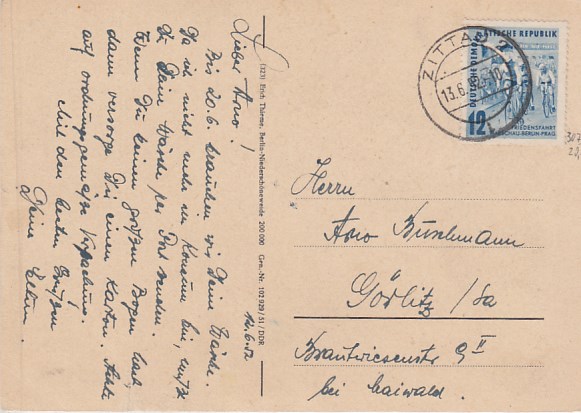 12.6.52
Lieber Arno!
Bis 20.6. brauchen wir Deine Wäsche.
Da ich nicht mehr im Konsum bin, mußt
Du Deine Wäsche per Post senden.
Wenn Du keinen großen Bogen hast,
dann versorge Dir einen Karton. Achte
auf ordnungsgemäße Verpackung.
Mit den besten Grüßen
Deine Eltern
(323) Erich Thieme, Berlin-Niederschöneweide 200 000 Gen.-Nr. 102 929/51/DDR
DEUTSCHE DEMOKRATISCHE REPUBLIK
12
FRIEDENSFAHRT
WARSCHAU-BERLIN-PRAG
ZITTAU 2
13.6.52
Herrn
Arno Buschmann
Görlitz / Sa
Brautwiesenstr 9 II
bei Maiwald.